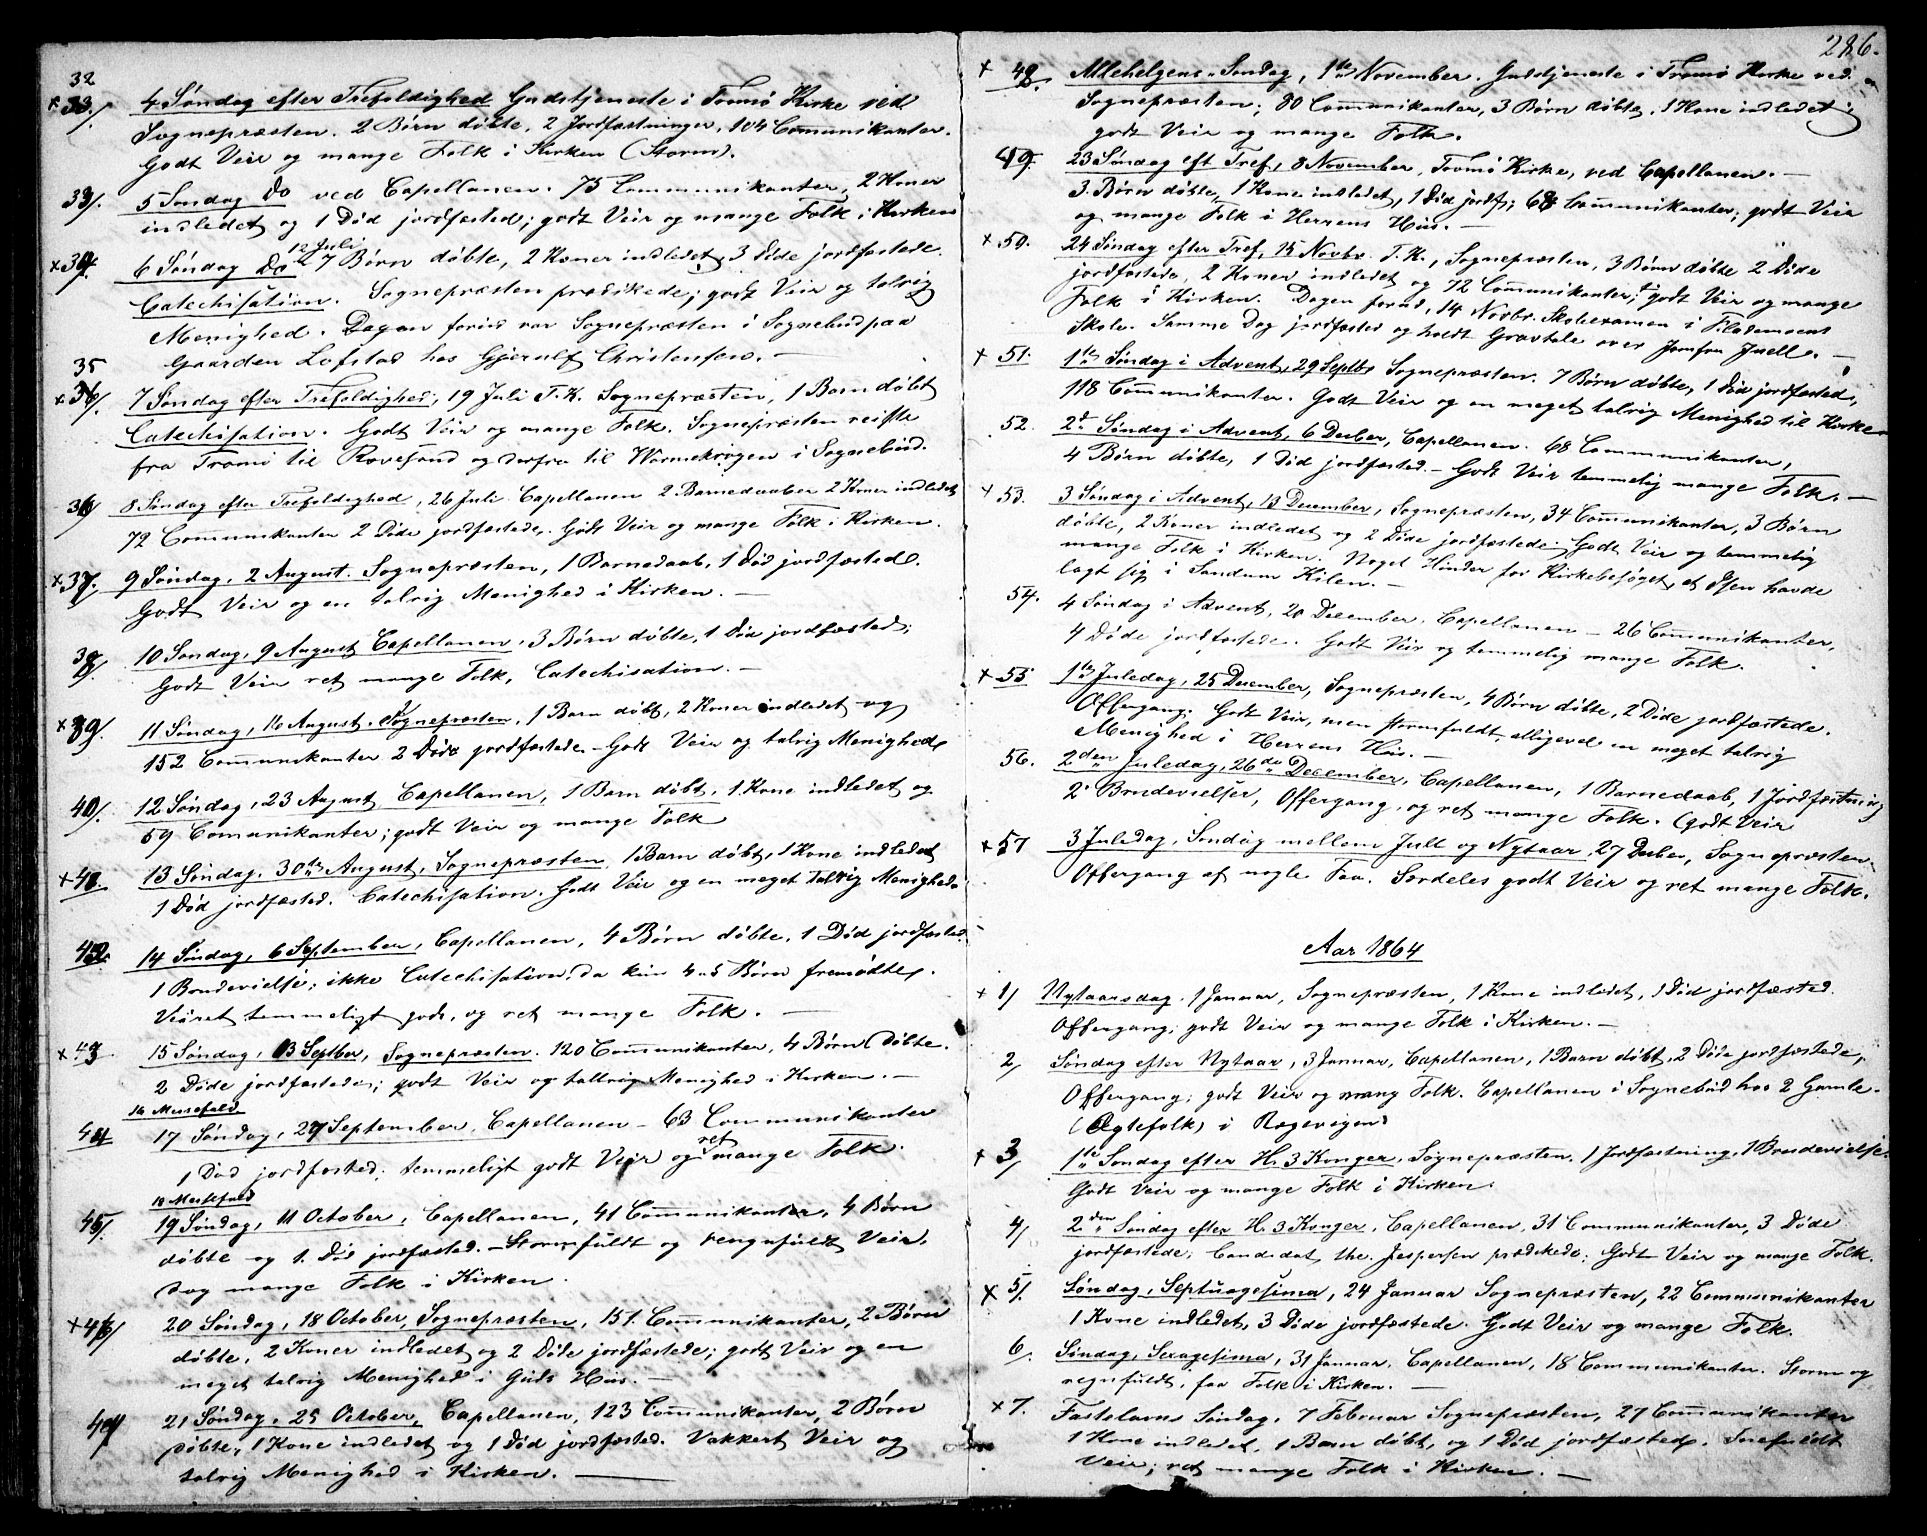 32
x 33/. 4 Søndag efter Trefoldighed Gudstjeneste i Tromø Kirke ved
Sognepræsten. 2 Børn døbte, 2 Jordfæstninger, 104 Communikanter.
Godt Veir og mange Folk i Kirken (Storm).
33/. 5 Søndag Do ved Capellanen. 75 Communikanter, 2 Koner
indledet og 1 Død jordfæsted; godt Veir og mange Folk i Kirken
12 Juli
x 34. 6 Søndag Do 7 Børn døbte, 2 Koner indledet, 3 Døde jordfæstede.
Catechisation. Sognepræsten prædikede; godt Veir og talrig
Menighed. Dagen forud var Sognepræsten i Sognebud paa
Gaarden Lofstad hos Gjerulf Christensen. —
35
x 36/. 7 Søndag efter Trefoldighed, 19 Juli T. K. Sognepræsten, 1 Barn døbt
Catechisation. Godt Veir og mange Folk. Sognepræsten reiste
fra Tromø til Revesand og derfra til Warmekrogen i Sognebud.
36/ 8 Søndag efter Trefoldighed, 26 Juli Capellanen 2 Barnedaaber 2 Koner indledet
72 Communikanter 2 Døde jordfæstede. Godt Veir og mange Folk i Kirken.
x 37. 9 Søndag, 2 August. Sognepræsten, 1 Barnedaab, 1 Død jordfæsted.
Godt Veir og en talrig Menighed i Kirken. —
38/ 10 Søndag, 9 August, Capellanen, 3 Børn døbte, 1 Død jordfæsted;
Godt Veir ret mange Folk, Catechisation. —
x 39/. 11 Søndag, 16 August. Sognepræsten, 1 Barn døbt, 2 Koner indledet og
152 Communikanter 2 Døde jordfæstede. – Godt Veir og talrig Menighed
40/. 12 Søndag, 23 August, Capellanen, 1 Barn døbt, 1 Kone indledet og
59 Comunikanter; godt Veir og mange Folk
x 41. 13 Søndag. 30te August, Sognepræsten, 1 Barn døbt, 1 Kone indledet
1 Død jordfæsted. Catechisation. Godt Veir og en meget talrig Menighed.
42. 14 Søndag, 6 September, Capellanen, 4 Børn døbte, 1 Død jordfæsted.
1 Brudevielse; ikke Catechisation, da kun 4 a 5 Børn fremødte.
Veiret temmeligt godt, og ret mange Folk. —
x 43. 15 Søndag, 13 Septber, Sognepræsten. 120 Communikanter, 4 Børn døbte.
2 Døde jordfæstede; godt Veir og talrig Menighed i Kirken. —
16 Messefald
44 17 Søndag, 27 September, Capellanen – 63 Communikanter
1 Død jordfæsted; temmeligt godt Veir og ret mange Folk.
18 Messefald
45/. 19 Søndag, 11 October, Capellanen, 41 Communikanter, 4 Børn
døbte og 1. Død jordfæsted. – Stormfuldt og regnfuldt Veir,
dog mange Folk i Kirken.
x 46/ 20 Søndag, 18 October, Sognepræsten, 151. Communikanter, 2 Børn
døbte, 2 Koner indledet og 2 Døde jordfæstede; godt Veir og en
meget talrig Menighed i Guds Hus. —
47/ 21 Søndag, 25 October, Capellanen, 123 Communikanter, 2 Børn
døbte, 1 Kone indledet og 1 Død jordfæsted. Vakkert Veir og
talrig Menighed i Kirken. —
286.
x 48. Allehelgens-Søndag, 1ste November. Gudstjeneste i Tromø Kirke ved
Sognepræsten; 80 Communikanter, 3 Børn døbte, 1 Kone indledet;
godt Veir og mange Folk.
49. 23 Søndag eft Tref, 8 November, Tromø Kirke, ved Capellanen. —
3. Børn døbte, 1 Kone indledet, 1 Død jordf; 68 Communikanter; godt Veir
og mange Folk i Herrens Hus. —
x 50. 24 Søndag efter Tref, 15 Novbr. T. K., Sognepræsten, 3 Børn døbte 2 Døde
jordfæstede, 2 Koner indledet og 72 Communikanter; godt Veir og mange
Folk i Kirken. Dagen forud, 14 Novbr. Skoleexamen i Flademoens
Skole. Samme Dag jordfæsted og holdt Gravtale over Jomfru Juell. —
x 51. 1ste Søndag i Advent, 29 Septbr Sognepræsten. 7 Børn døbte, 1 Død jordfæsted,
118 Communikanter. Godt Veir og en meget talrig Menighed til Kirke
52. 2d Søndag i Advent, 6 Decber, Capellanen. 68 Communikanter,
4 Børn døbte, 1 Død jordfæsted. – Godt Veir temmelig mange Folk. —
x 53. 3 Søndag i Advent, 13 December, Sognepræsten, 34 Communikanter, 3 Børn
døbte, 2 Koner indledet og 2 Døde jordfæstede. Godt Veir og temmelig
mange Folk i Kirken. Noget Hinder for Kirkebesøget, at Isen havde
lagt sig i Sandum Kilen. —
54. 4 Søndag i Advent, 20 December, Capellanen – 26 Communikanter,
4 Døde jordfæstede. Godt Veir og temmelig mange Folk.
x 55 1ste Juledag, 25 December, Sognepræsten, 4 Børn døbte, 2 Døde jordfæstede.
Offergang. Godt Veir, men stormfuldt, alligevel en meget talrig
Menighed i Herrens Hus. —
56. 2den Juledag, 26de December, Capellanen, 1 Barnedaab, 1 Jordfæstning
2 Brudevielser, Offergang, og ret mange Folk. (Godt Veir
x 57 3 Juledag, Søndag mellem Juul og Nytaar, 27 Decber, Sognepræsten.
Offergang af nogle Faa. Særdeles godt Veir og ret mange Folk.
Aar 1864
x 1/ Nytaarsdag, 1 Januar, Sognepræsten, 1 Kone indledet, 1 Død jordfæsted.
Offergang; godt Veir og mange Folk i Kirken. —
2/ Søndag efter Nytaar, 3 Januar, Capellanen, 1 Barn døbt, 2 Døde jordfæstede,
Offergang; godt Veir og mang Folk. Capellanen i Sognebud hos 2 Gamle
(Ægtefolk) i Rægevigen
x 3/ 1ste Søndag efter H. 3 Konger, Sognepræsten, 1 Jordfæstning, 1 Brudevielse.
Godt Veir og mange Folk i Kirken.
4/ 2den Søndag efter H. 3 Konger, Capellanen, 31 Communikanter, 3 Døde
jordfæstede; Candidat the. Jespersen prædikede. Godt Veir og mange Folk.
x 5/. Søndag, Septuagesima, 24 Januar Sognepræsten, 22 Communikanter
1 Kone indledet, 3 Døde jordfæstede. Godt Veir og mange Folk.
6. Søndag, Sexagesima, 31 Januar, Capellanen, 18 Communikanter. Storm og
regnfuldt, faa Folk i Kirken. —
x 7. Fastelavns Søndag, 7 Februar Sognepræsten, 27 Communikanter
1 Kone indledet, 1 Barn døbt, og 1 Død jordfæsted. Snefuldt
Veir; ret mange Folk i Kirken. —